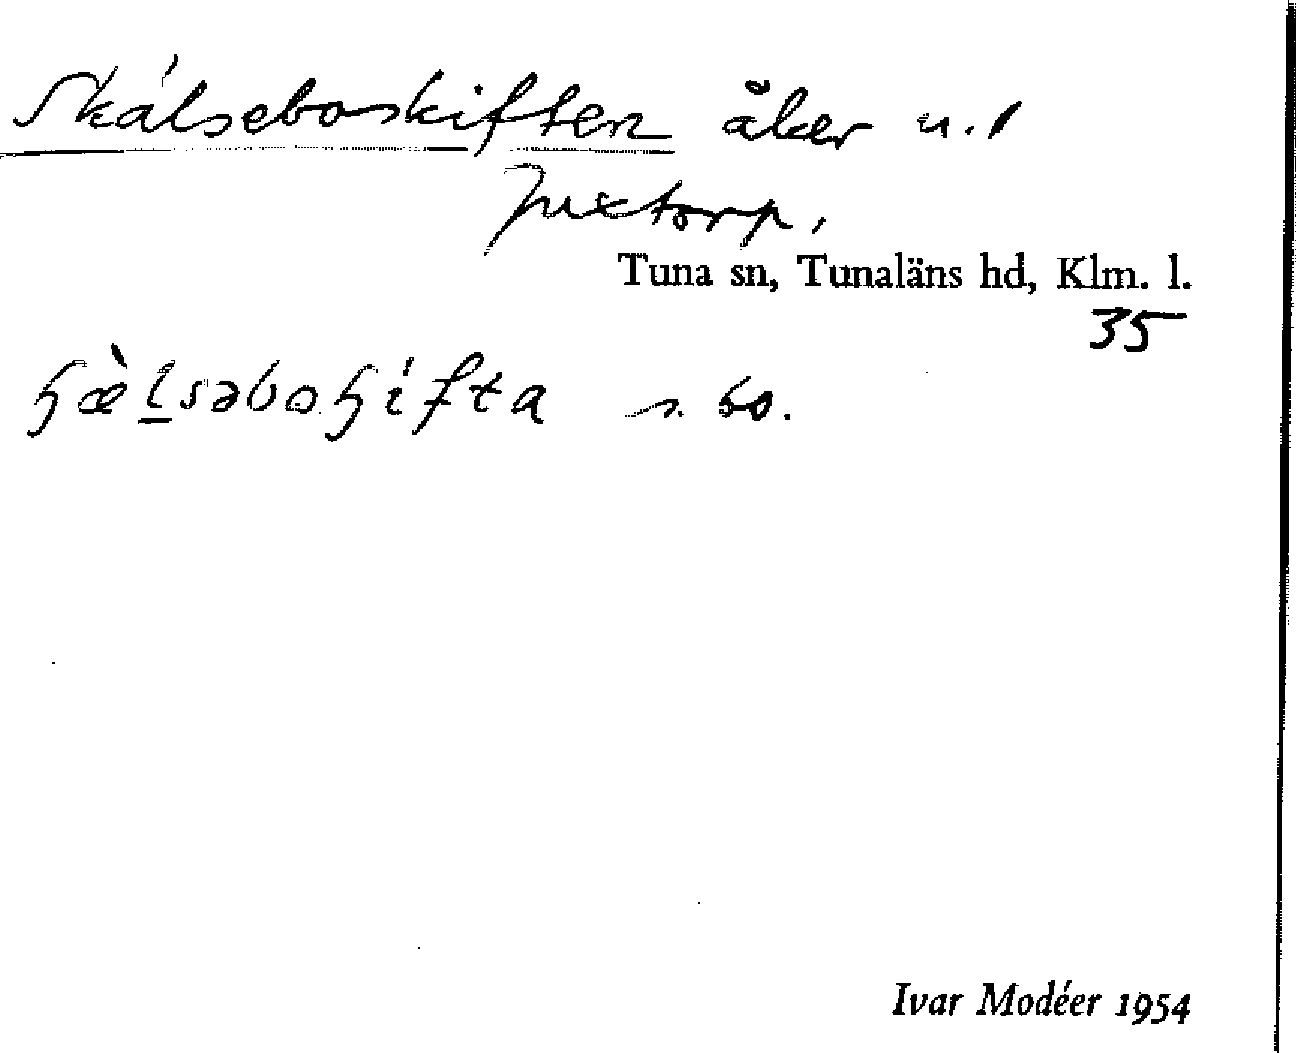 Skálseboskiften åker u.
Juxtorp.
Tuna sn, Tunaläns hd, Klm. l.
35
ɧæ̀ḻsəboɧífta s. bo.
Ivar Modéer 1954